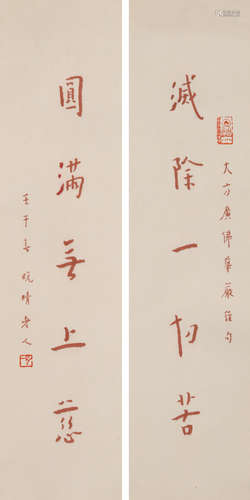 滅除一切苦
大方廣佛華嚴經句
圓滿無上慈
壬午春晚晴老人